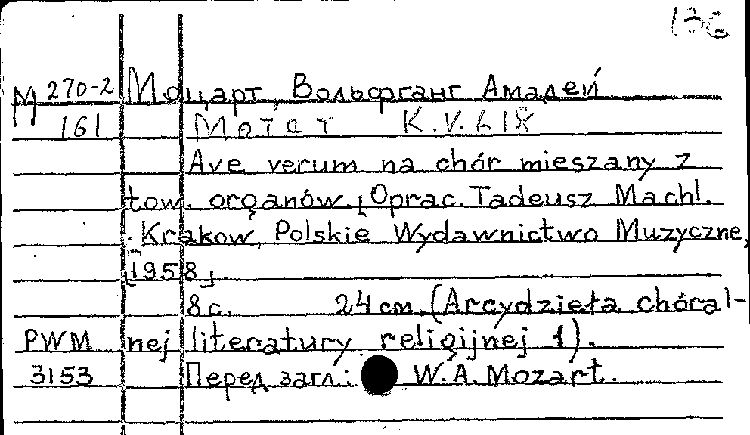 136
М 270-2 Моцарт, Вольфганг Амадей
161 Мотет K.V.618
Ave verum na chór mieszany z
tow. organów. [Oprac. Tadeusz Machl.
Krakow, Polskie Wydawnictwo Muzyczne,
[1958].
8 с. 24 см. (Arcydzieła chóral-
PWM nej literatury religijnej 1).
3153 Перед загл.: W.A. Mozart.